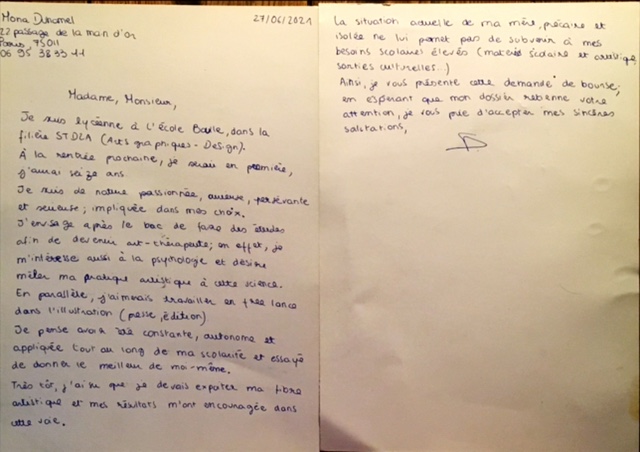 Mona Duhamel
27/06/2021
22 passage de la main d'or
Paris 75011
06 95 38 99 11
Madame, Monsieur,
Je suis lycéenne à L'école Boulle, dans la
filière STD2A (Arts graphiques - Design).
À la rentrée prochaine, je serais en première,
j'aurai seize ans.
Je suis de nature passionnée, curieuse, persévérante
et sérieuse ; impliquée dans mes choix.
J'envisage après le bac de faire des études
afin de devenir art-thérapeute ; en effet, je
m'intéresse aussi à la psychologie et désire
mêler ma pratique artistique à cette science.
En parallèle, j'aimerais travailler en free lance
dans l'illustration (presse, édition)
Je pense avoir été constante, autonome et
appliquée tout au long de ma scolarité et essayé
de donner le meilleur de moi-même.
Très tôt, j'ai su que je devais exploiter ma fibre
artistique et mes résultats m'ont encouragée dans
cette voie.
La situation actuelle de ma mère, précaire et
isolée ne lui permet pas de subvenir à mes
besoins scolaires élevés (matériel scolaire et artistique,
sorties culturelles...)
Ainsi, je vous présente cette demande de bourse;
en espérant que mon dossier retienne votre
attention, je vous prie d'accepter mes sincères
salutations,